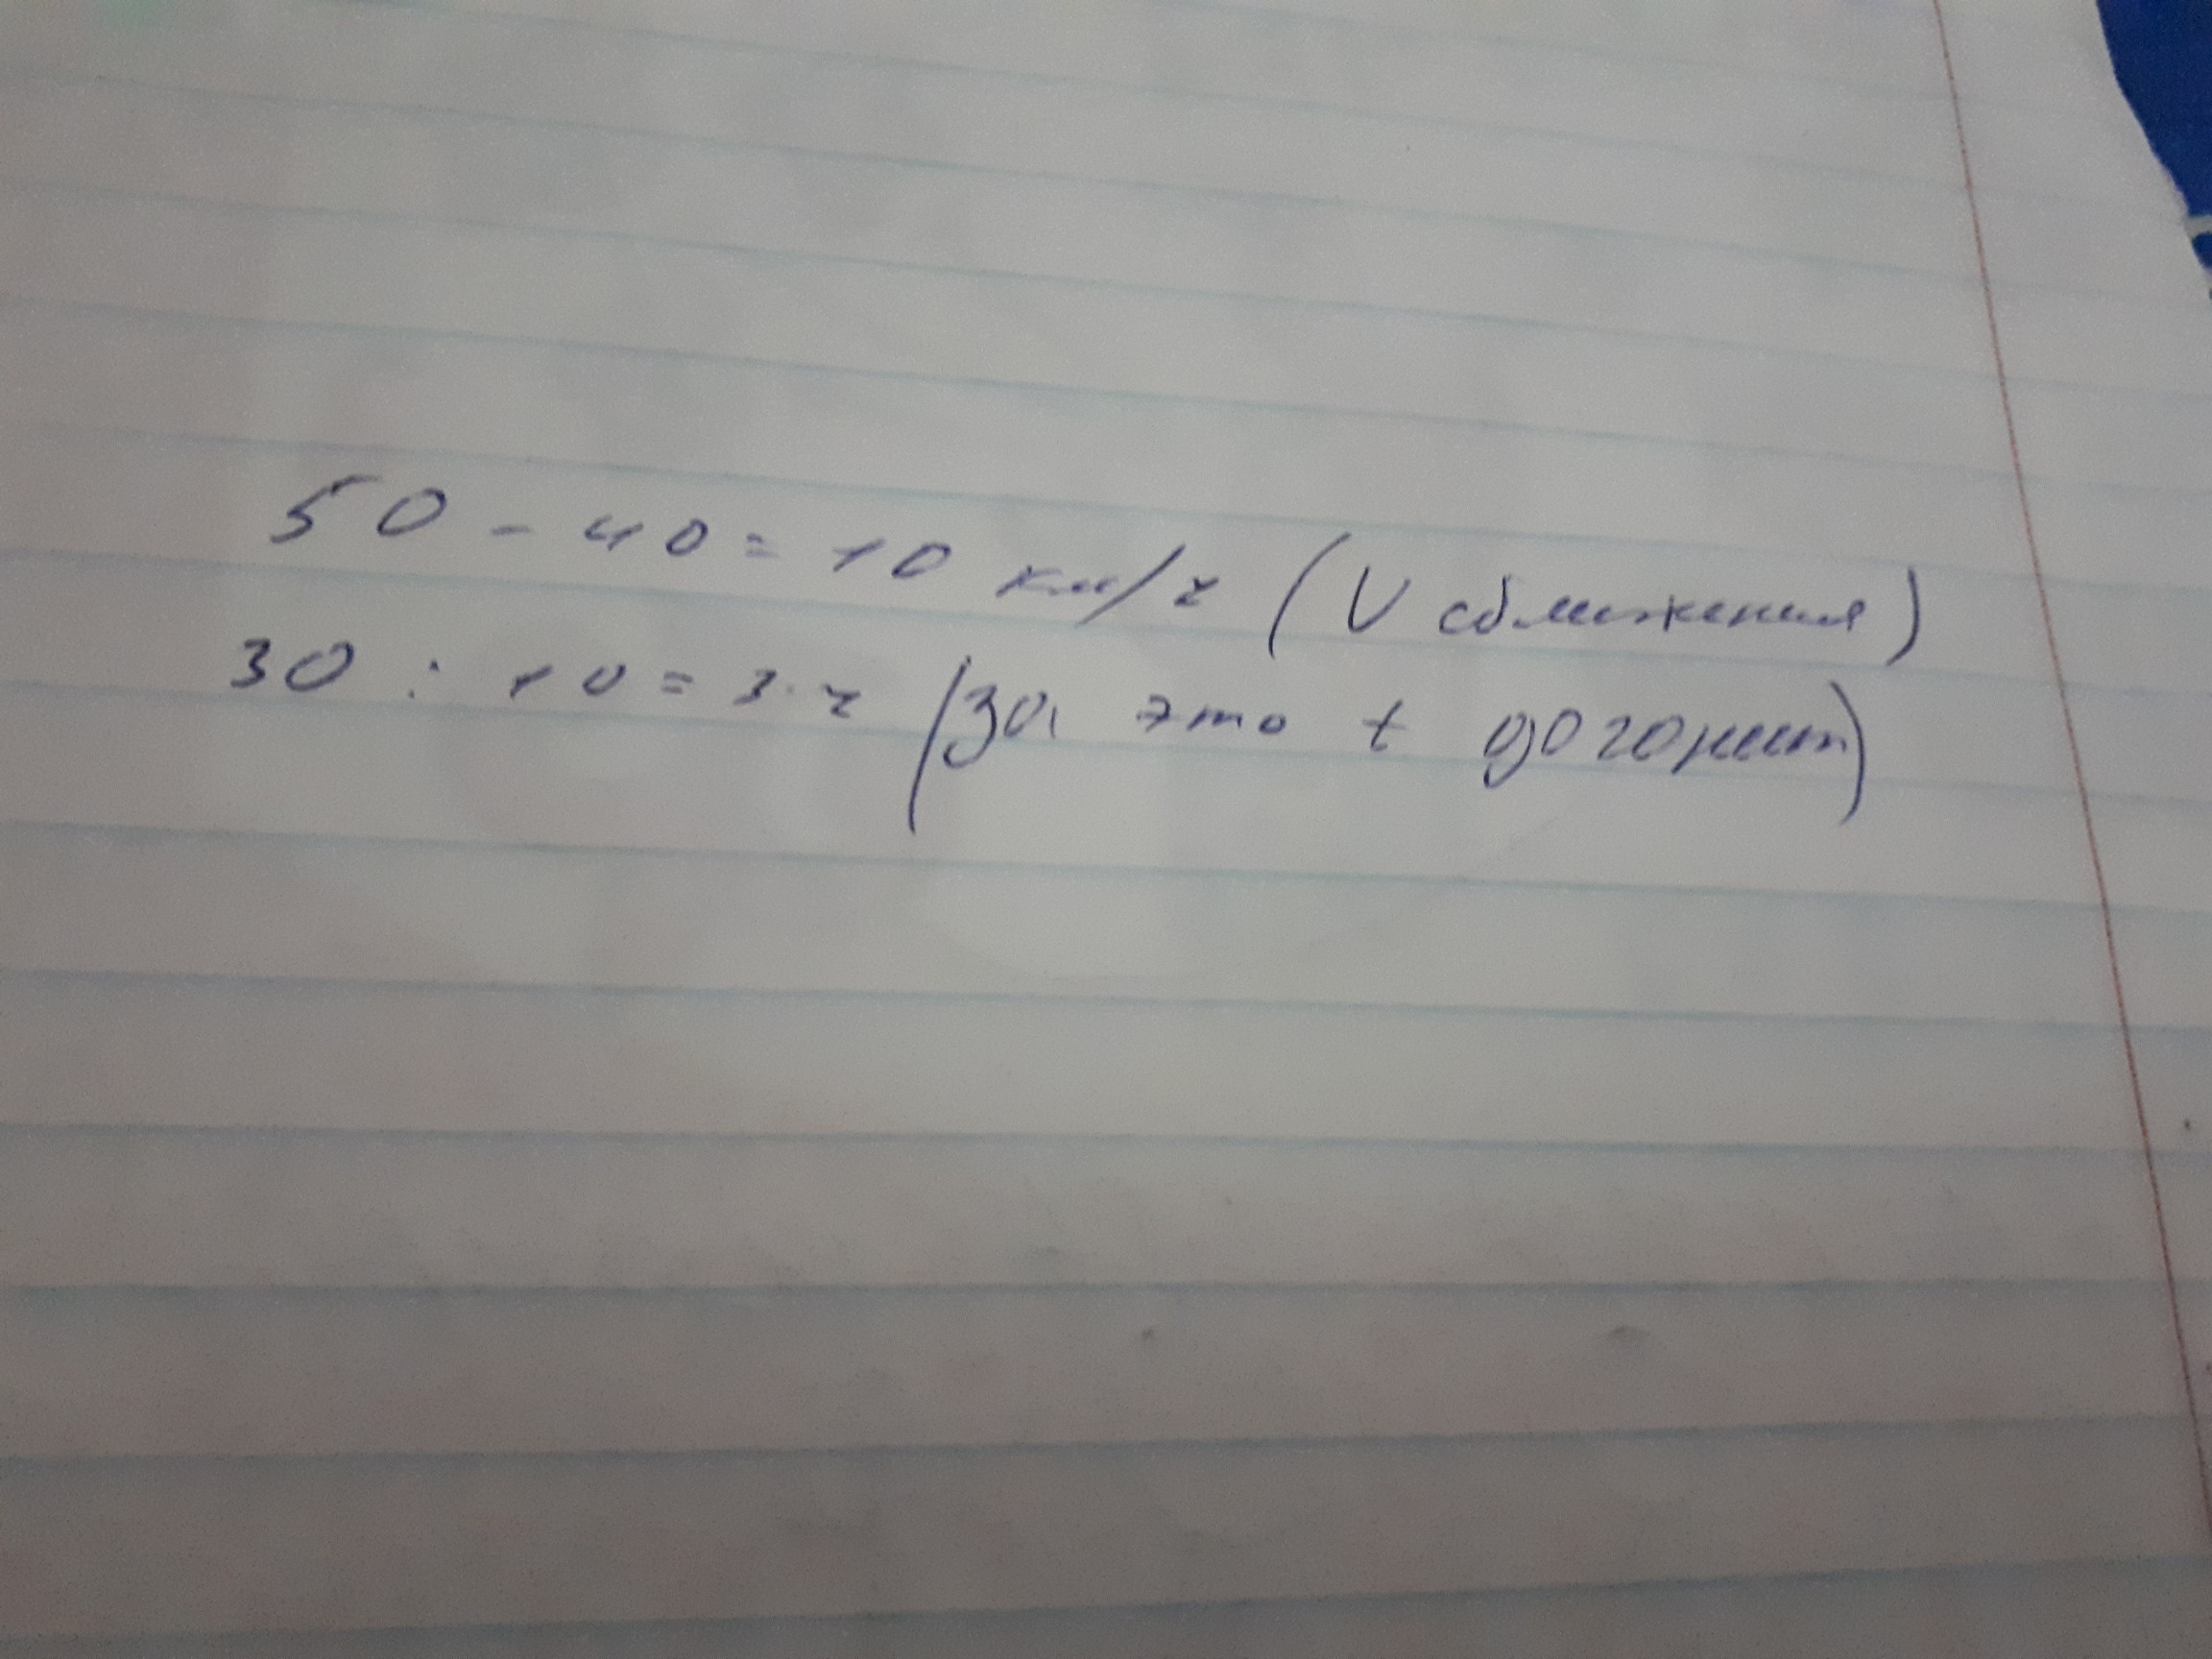 50 - 40 = 10 км/ч (V сближения)
30 : 10 = 3 ч (За это t догонит)